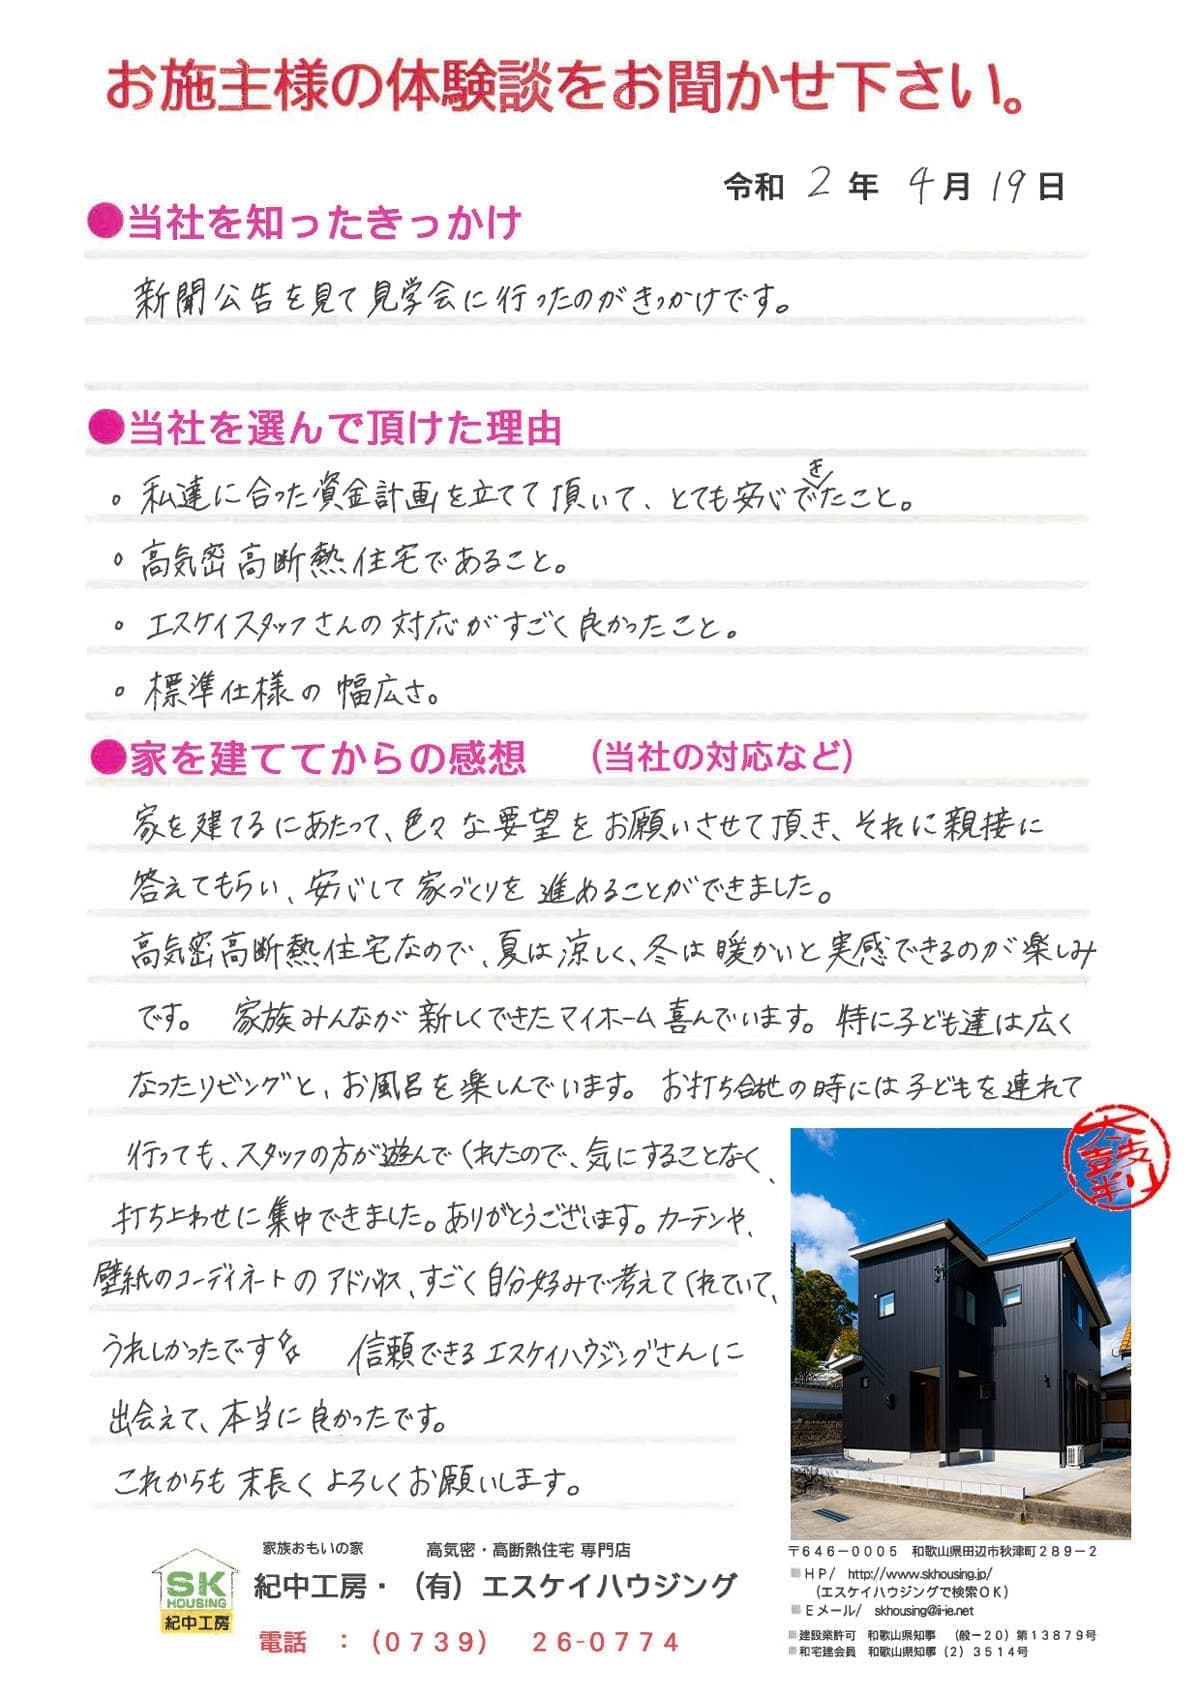 お施主様の体験談をお聞かせ下さい。
令和 2 年 4 月 19 日
●当社を知ったきっかけ
新聞公告を見て見学会に行ったのがきっかけです。
●当社を選んで頂けた理由
。私達に合った資金計画を立てて頂いて、とても安心できたこと。
。高気密高断熱住宅であること。
。エスケイスタッフさんの対応がすごく良かったこと。
。標準仕様の幅広さ。
●家を建ててからの感想 (当社の対応など)
家を建てるにあたって、色々な要望をお願いさせて頂き、それに親接に
答えてもらい、安心して家づくりを進めることができました。
高気密高断熱住宅なので、夏は涼しく、冬は暖かいと実感できるのが楽しみ
です。 家族みんなが新しくできたマイホーム喜んでいます。特に子ども達は広く
なったリビングと、お風呂を楽しんでいます。お打ち合せの時には子どもを連れて
行っても、スタッフの方が遊んでくれたので、気にすることなく、
打ち上わせに集中できました。ありがとうございます。カーテンや、
壁紙のコーディネートのアドバイス、すごく自分好みで考えてくれていて、
うれしかったです 信頼できるエスケイハウジングさんに
出会えて、本当に良かったです。
これからも末長くよろしくお願いします。
太鼓判
SK
HOUSING
紀中工房
家族おもいの家 高気密・高断熱住宅 専門店
紀中工房・(有)エスケイハウジング
電話 : (0739) 26-0774
〒646-0005 和歌山県田辺市秋津町289-2
HP/ http://www.skhousing.jp/
(エスケイハウジングで検索OK)
Eメール/ skhousing@ii-ie.net
建設業許可 和歌山県知事 (般-20)第13879号
和宅建会員 和歌山県知事(2)3514号